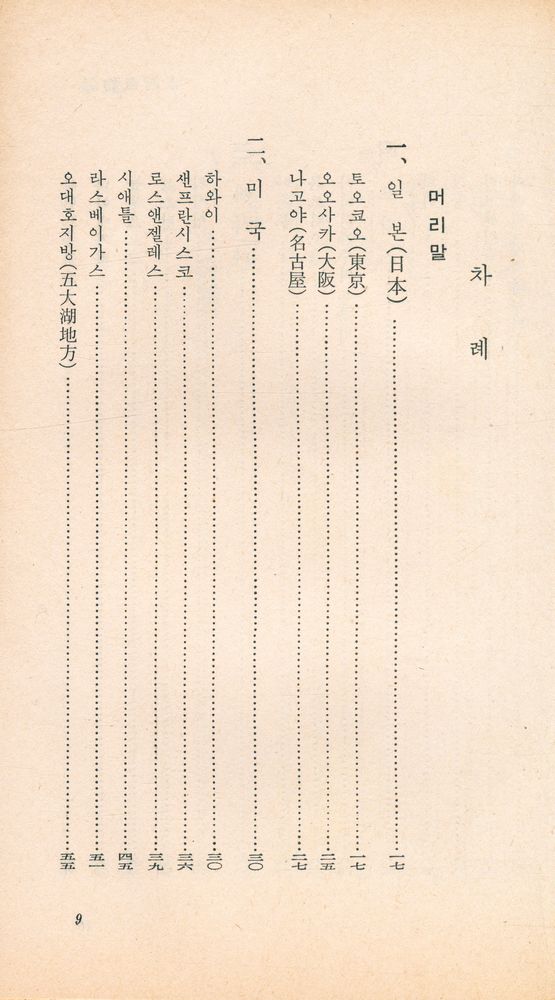 차 례
머리말
一、일 본(日本)……一七
토오쿄오(東京)……一七
오오사카(大阪)……二五
나고야(名古屋)……二七
二、미 국……三〇
하와이……三〇
샌프란시스코……三六
로스앤젤레스……三九
시애틀……四五
라스베이가스……五一
오대호지방(五大湖地方)……五五
9